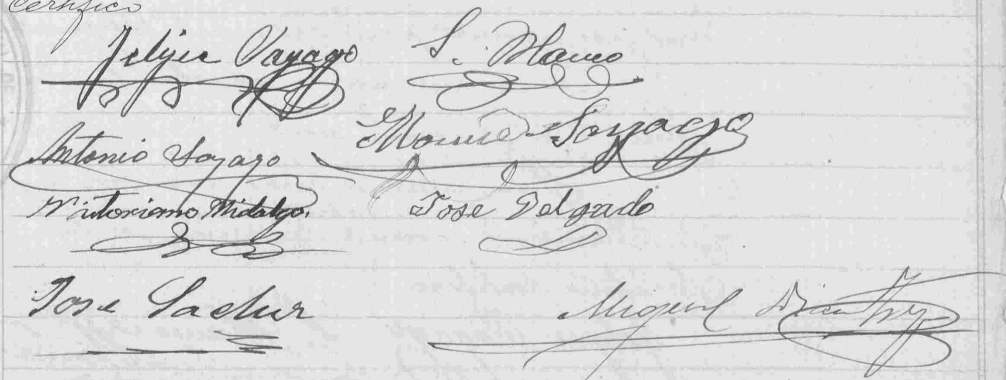 Certifico
Felipe Vayago S. Blanco
Antonio Sayago Manuel Sayago
Victoriano Hidalgo José Delgado
Jose Miguel